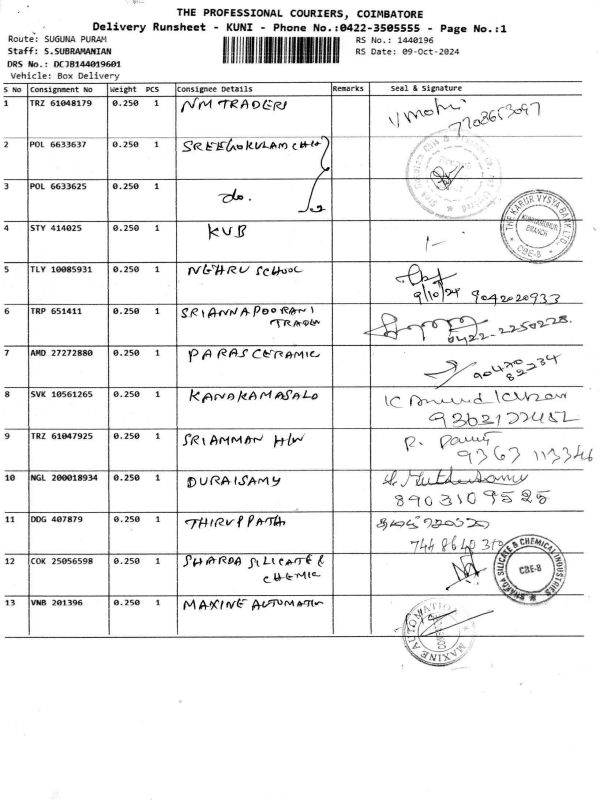 THE PROFESSIONAL COURIERS, COIMBATORE
Delivery Runsheet - KUNI - Phone No.:0422-3505555 - Page No.:1
Route: SUGUNA PURAM
RS No.: 1440196
Staff: S.SUBRAMANIAN
RS Date: 09-Oct-2024
DRS No.: DCJB144019601
Vehicle: Box Delivery
S No Consignment No Weight PCS Consignee Details Remarks Seal & Signature
1 TRZ 61048179 0.250 1 NM TRADERS
7708653097
2 POL 6633637 0.250 1 SREEGOKULAM CHIT
3 POL 6633625 0.250 1 do.
4 STY 414025 0.250 1 KVB
THE KARUR VYSYA BANK LTD.
BRANCH
CBE-8
5 TLY 10085931 0.250 1 NEHRU SCHOOL
9/10/24 9042020933
6 TRP 651411 0.250 1 SRI ANNAPOORANI
TRADER
0422-2250228.
7 AMD 27272880 0.250 1 PARAS CERAMIC
8 SVK 10561265 0.250 1 KANAKAMASALA
9 TRZ 61047925 0.250 1 SRI AMMAN H/W
9363 113346
10 NGL 200018934 0.250 1 DURAISAMY
8903109525
11 DDG 407879 0.250 1 THIRUPPATH
7448640310
12 COK 25056598 0.250 1 SHARDA SILICATE &
CHEMIC
SHARDA SILICATE & CHEMICAL INDUSTRIES
CBE-8
13 VNB 201396 0.250 1 MAXINE AUTOMATIO
MAXINE AUTOMATION